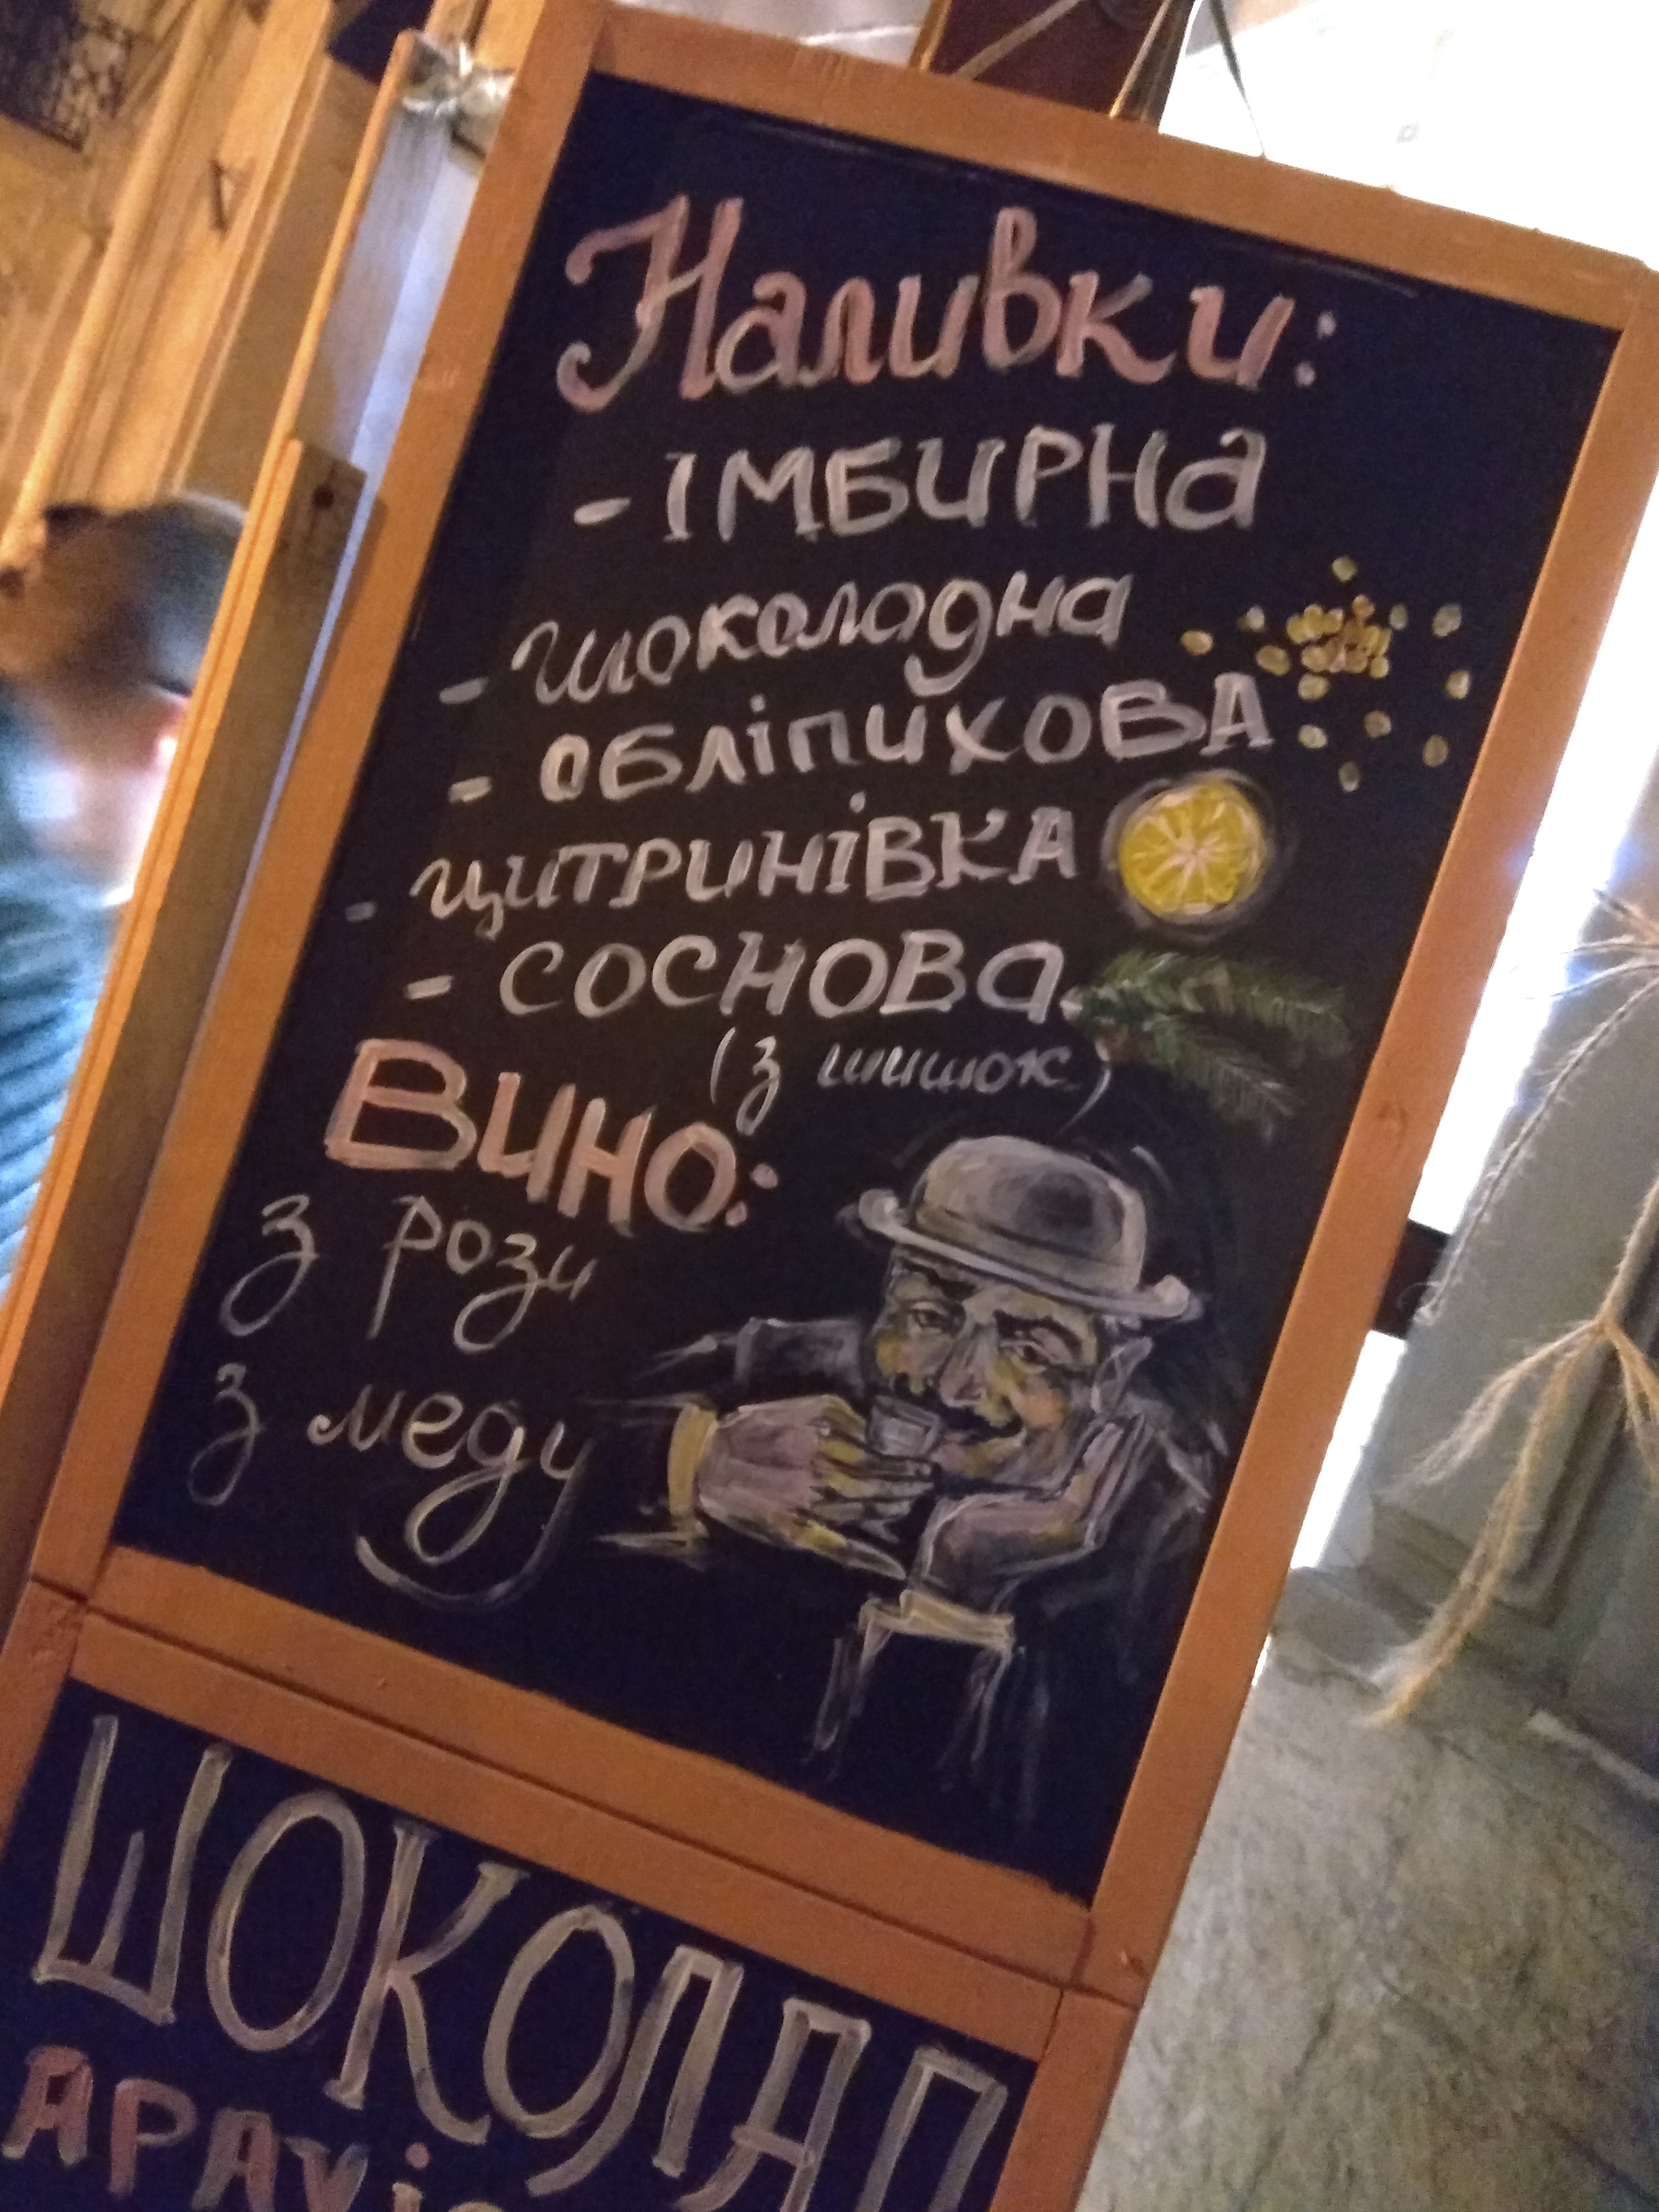 Наливки:
- ІМБИРНа
- шоколадна
- ОБЛІПИХОВА
- ЦИТРИНІВКА
- СОСНОВа
(з шишок)
ВИНО:
з рози
з меду
ШОКОЛАД